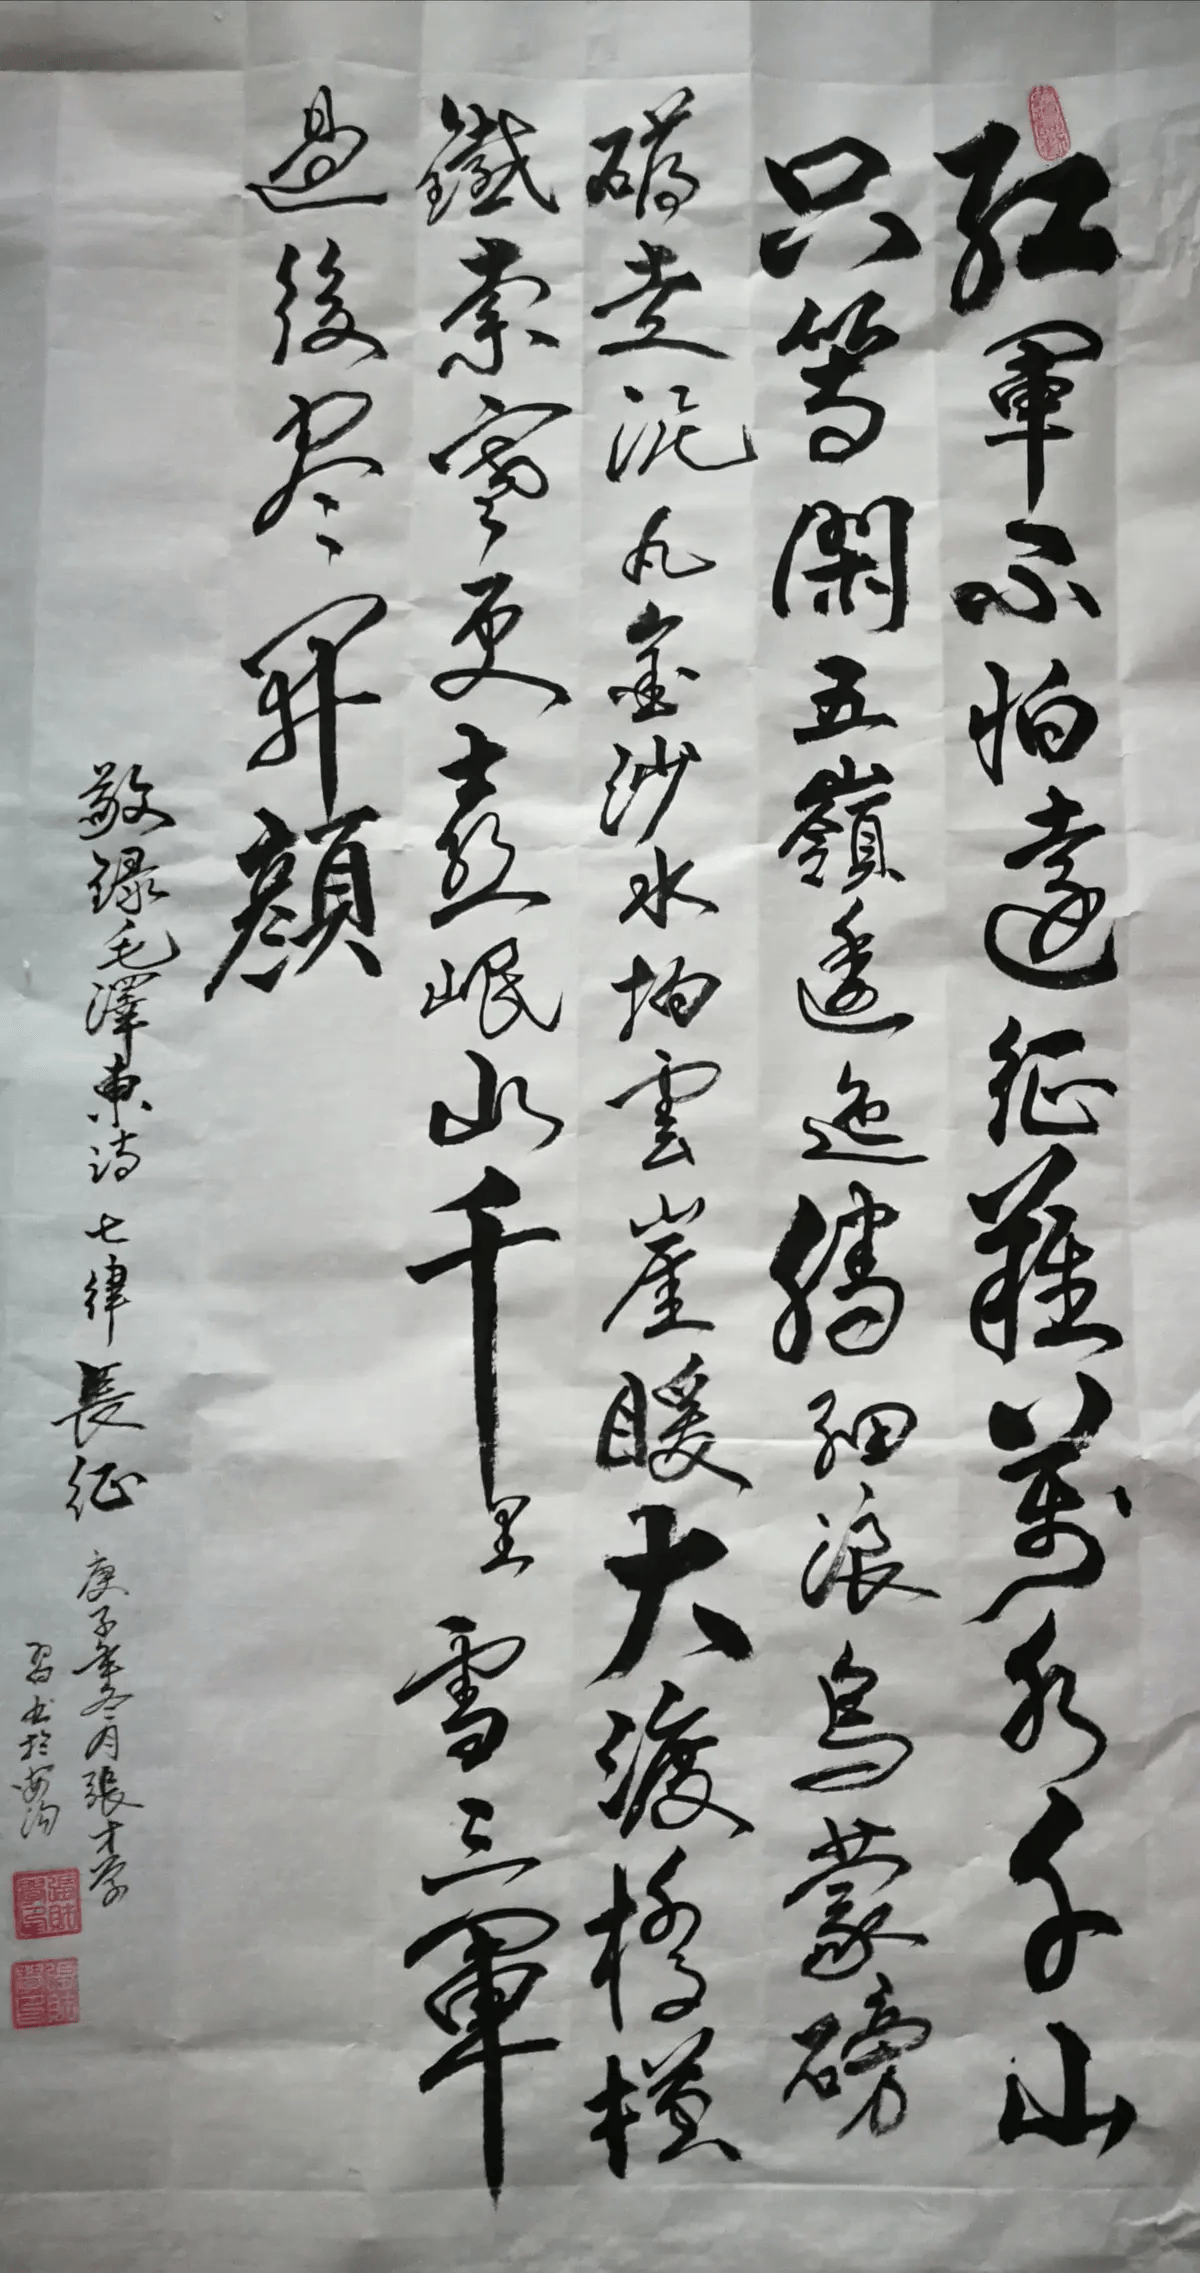 紅軍不怕遠征難萬水千山
只等閑五嶺逶迤騰細浪烏蒙磅
礴走泥丸金沙水拍雲崖暖大渡橋橫
鐵索寒更喜岷山千里雪三軍
過後尽開顏
敬録毛澤東詩七律長征
庚子年冬月張才学
習書於